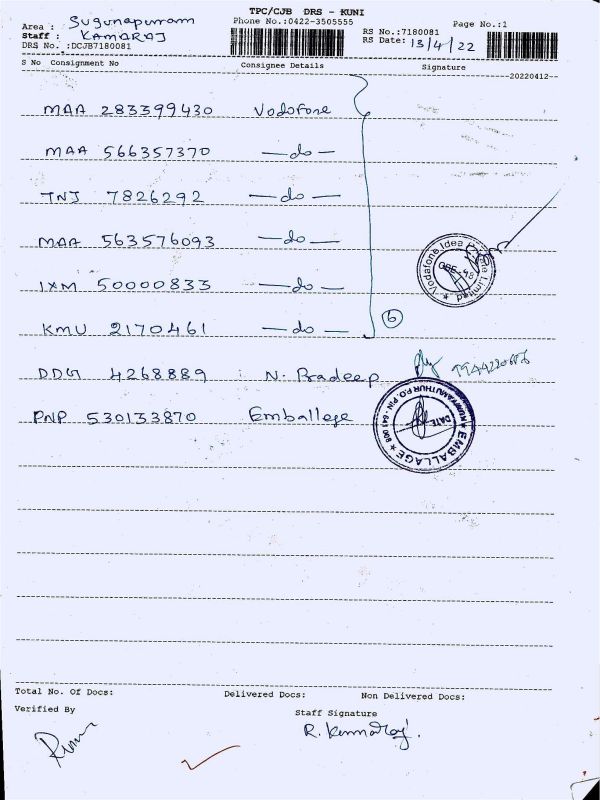 TPC/CJB DRS - KUNI
Area : Sugunapuram
Phone No.:0422-3505555
Page No.:1
Staff : KAMARAJ
RS No.:7180081
DRS No. :DCJB7180081
RS Date: 13/4/22
S No Consignment No Consignee Details Signature
--20220412--
MAA 283399430 Vodofone
MAA 566357370 — do —
TNJ 7826292 — do —
MAA 563576093 — do —
Vodafone Idea Limited
IXM 50000833 — do —
KMU 2170461 — do — 6
DDG 4268889 : N. Pradeep
PNP 530133870 Emballege
★ EMBALLAGE ★ KUNIYAMUTHUR P.O. PIN - 641 008
DATE
Total No. Of Docs: Delivered Docs: Non Delivered Docs:
Verified By Staff Signature
R. Kamaraj.